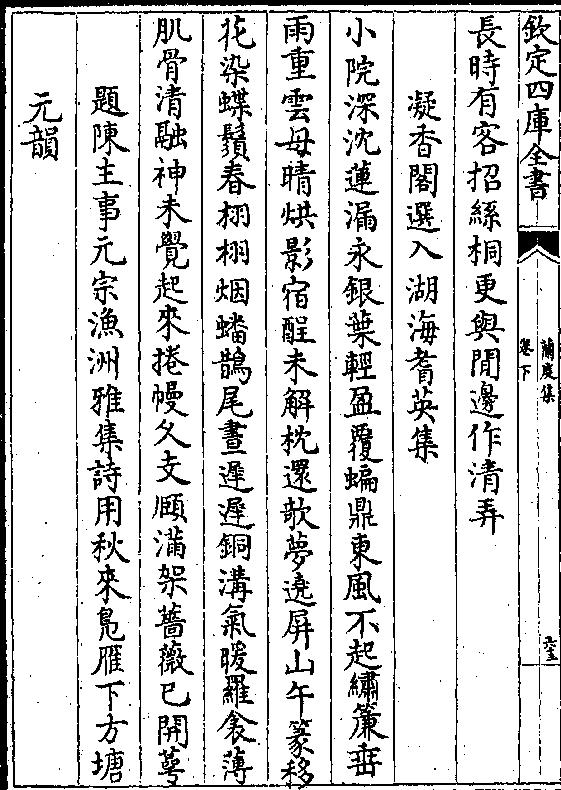 欽定四庫全書
蘭庭集
卷下
長時有客招絲桐更與閒邊作清弄
凝香閣選入湖海耆英集
小院深沈蓮漏永銀葉輕盈覆蝙鼎東風不起繡簾垂
雨重雲母晴烘影宿酲未解枕還欹夢遶屏山午篆移
花染蝶鬚春栩栩烟蟠鵲尾晝遲遲銅溝氣暖羅衾薄
肌骨清融神未覺起來捲幔久支頤滿架薔薇已開萼
題陳主事元宗漁洲雅集詩用秋來鳬雁下方塘
元韻